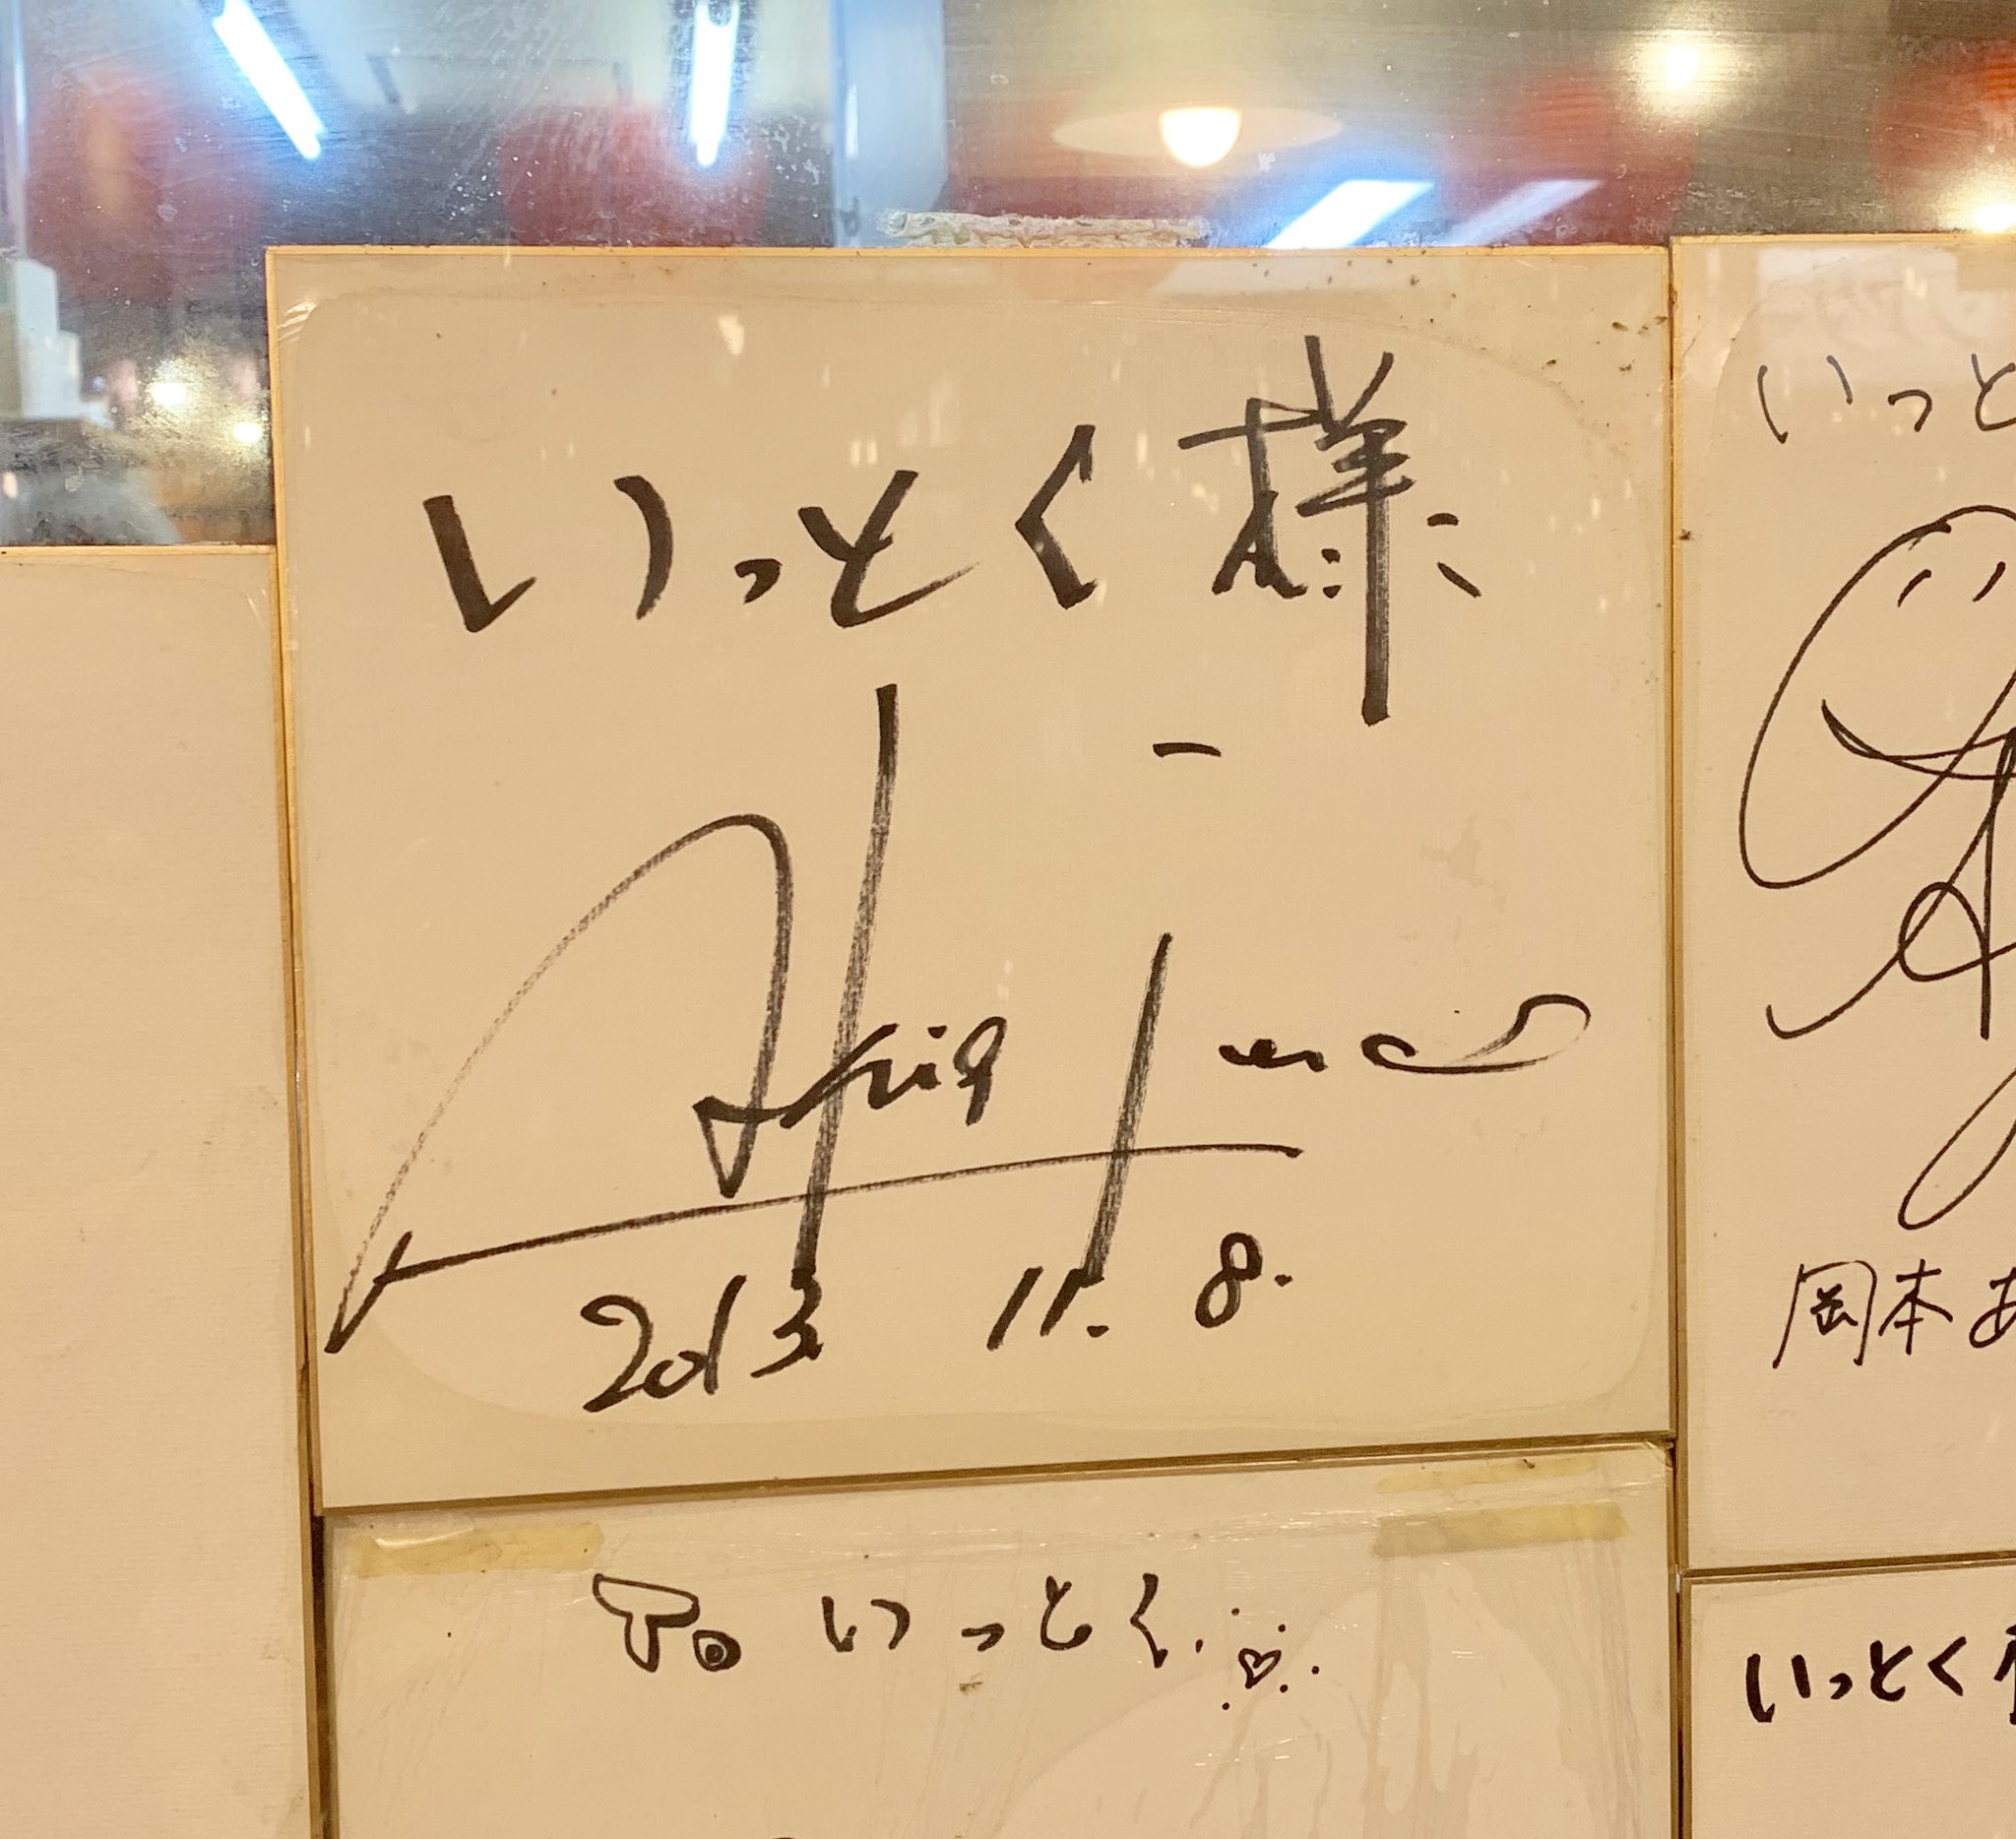 いっとく様
2013 11. 8.
To いっとく
いっと
岡本あ
いっとく